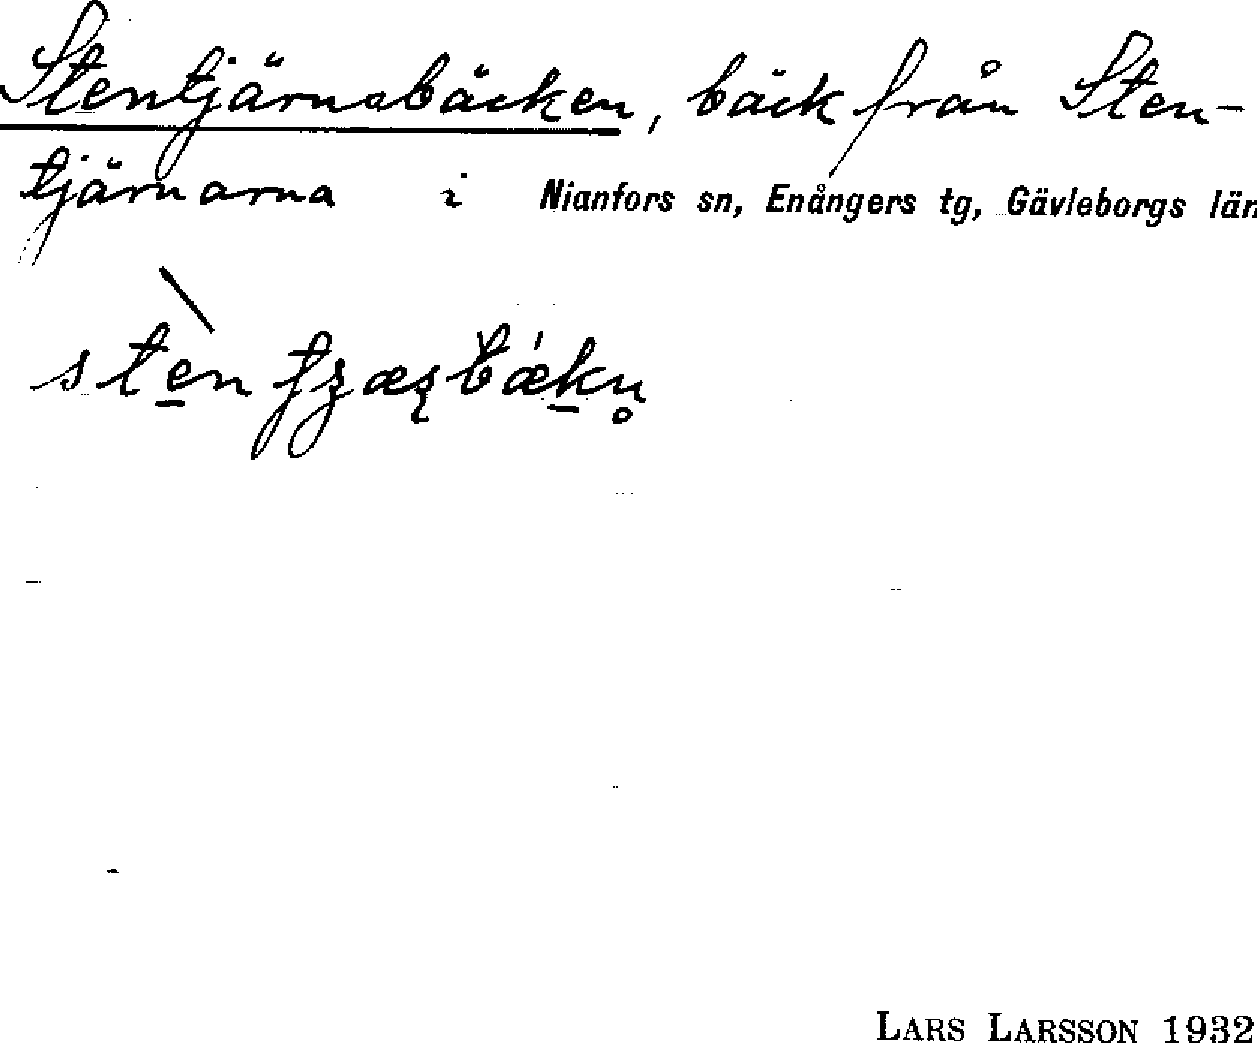 Stentjärnsbäcken, bäck från Sten-
tjärnarna i Nianfors sn, Enångers tg, Gävleborgs län
LARS LARSSON 1932